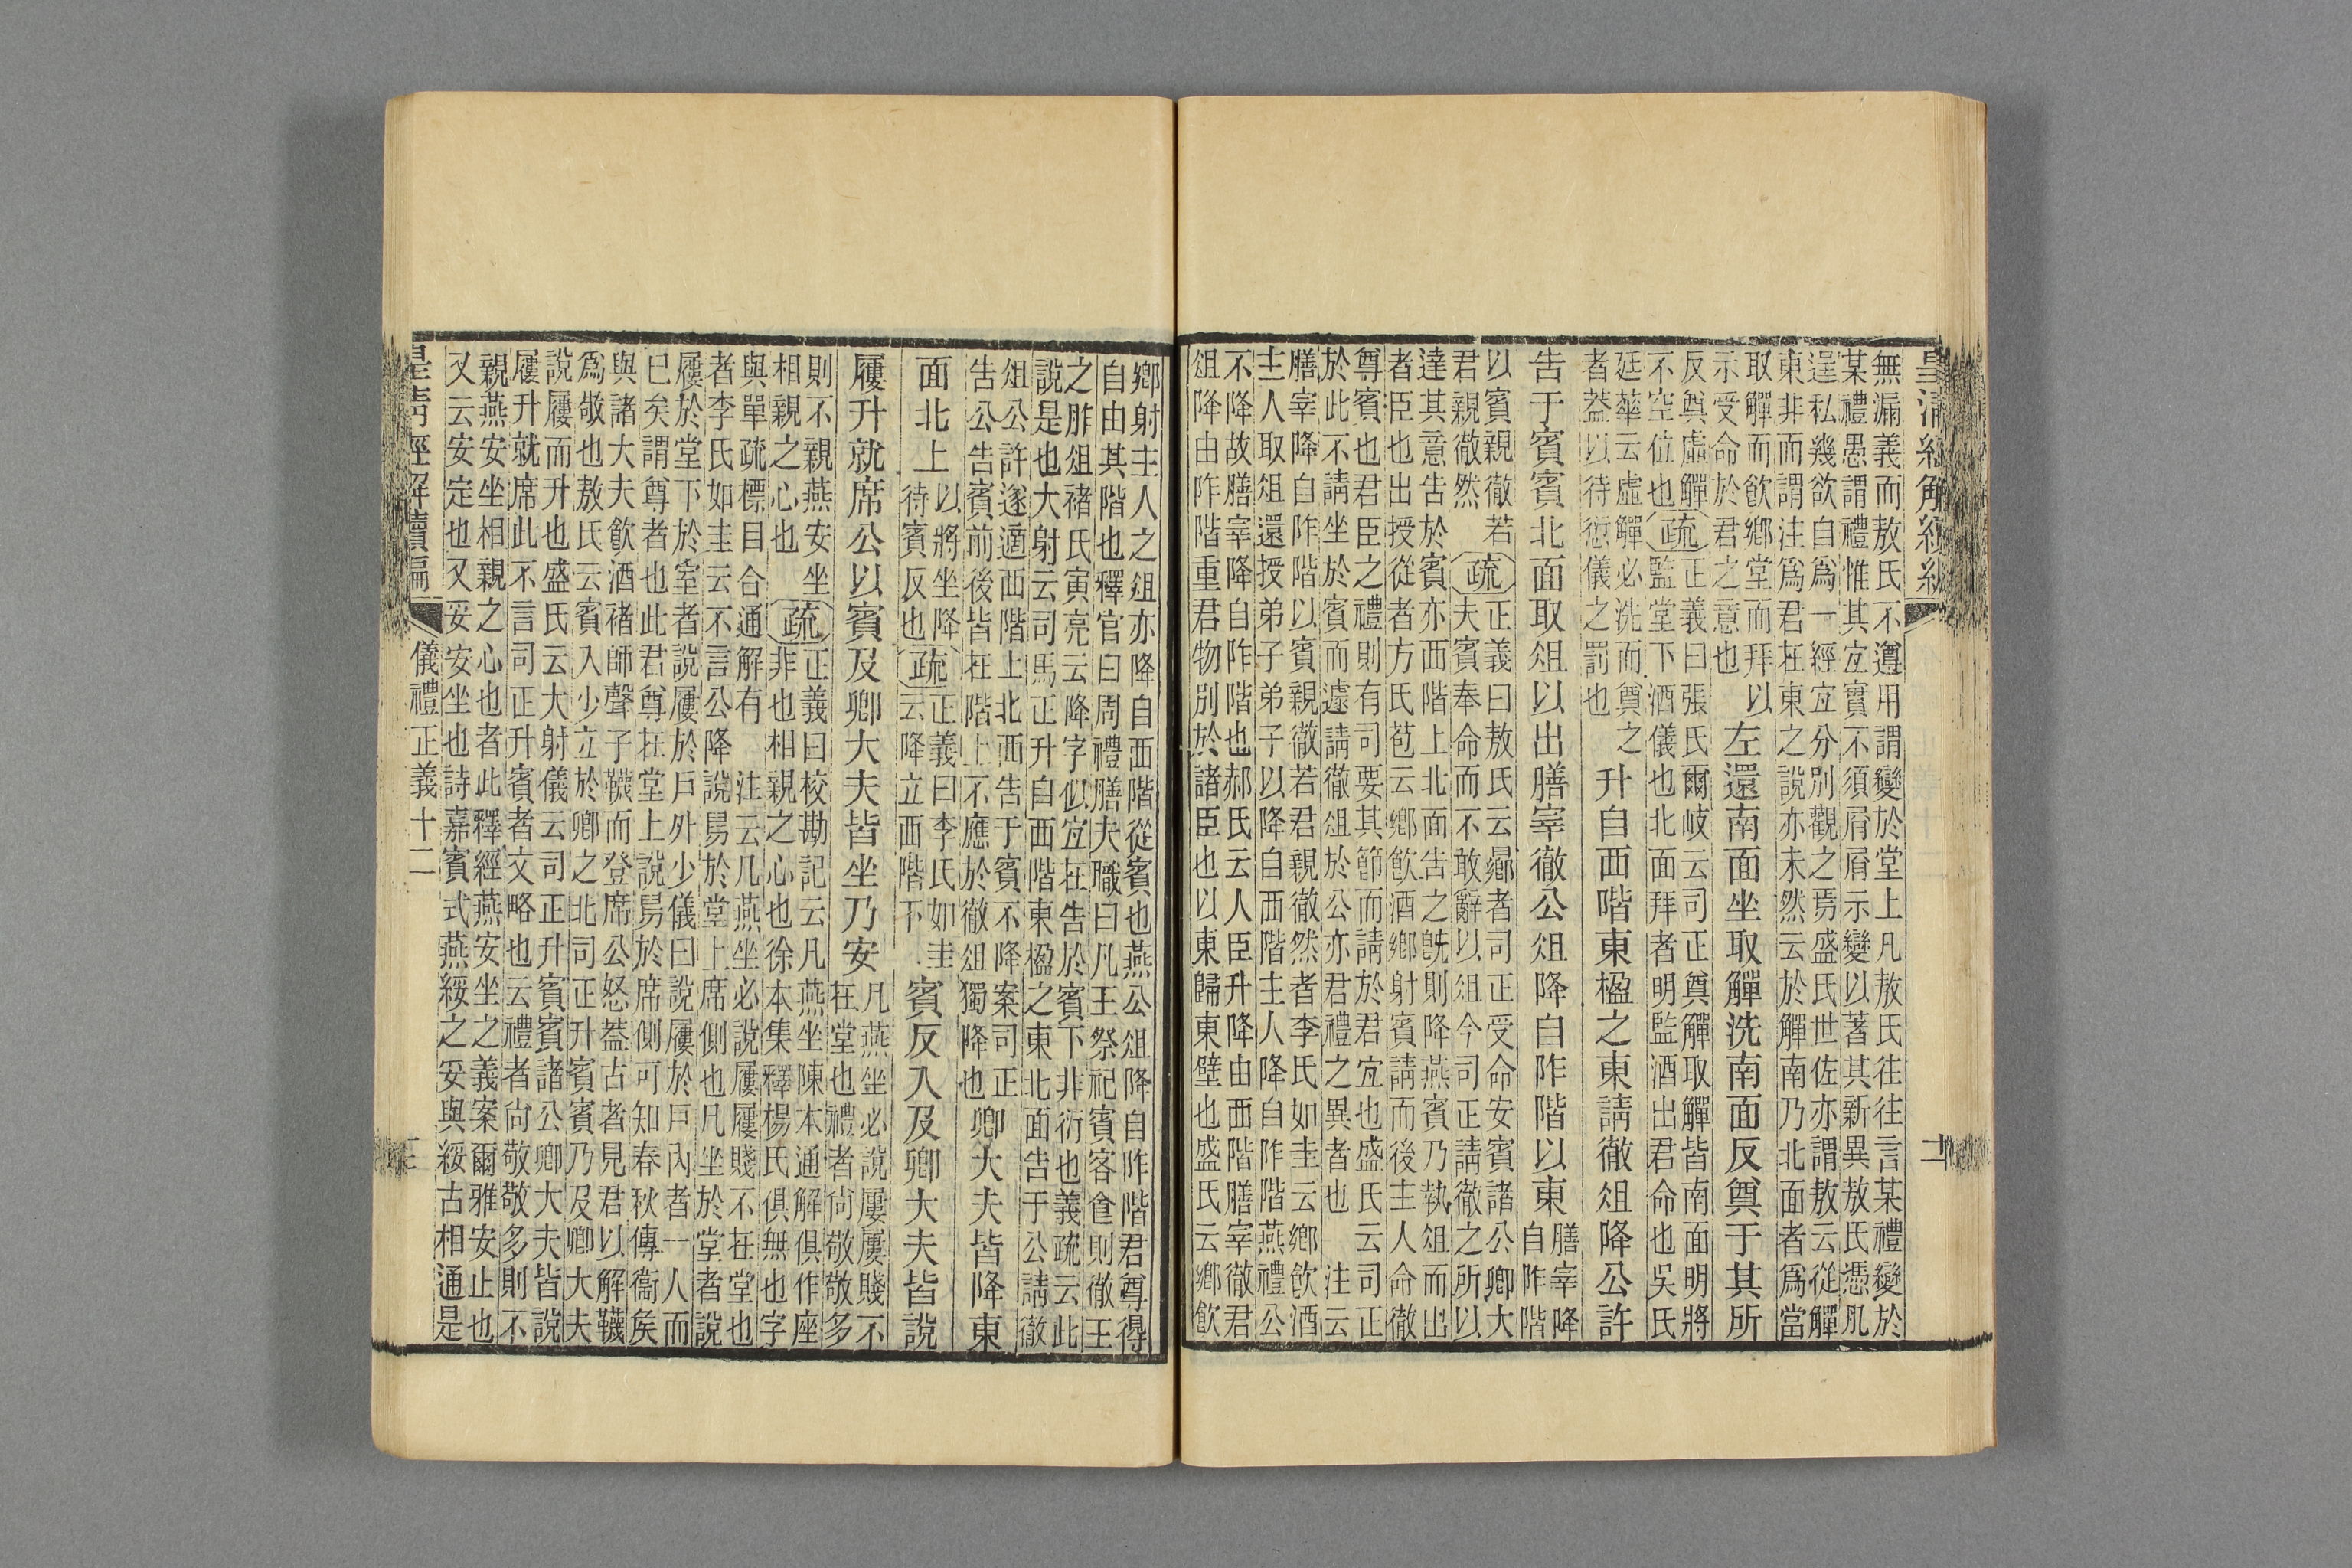 無漏義而敖氏不遵用謂變於堂上凡敖氏往往言某禮變於
某禮愚謂禮惟其宜實不須屑屑示變以著其新異敖氏憑肊
逞私幾欲自爲一經宜分別觀之焉盛氏世佐亦謂敖云從觶
東非而謂注爲君在東之說亦未然云於觶南乃北面者爲當
取觶而飮鄉堂而拜以
示受命於君之意也
左還南面坐取觶洗南面反奠于其所
反奠虛觶
不空位也
疏
正義曰張氏爾岐云司正奠觶取觶皆南面明將
監堂下酒儀也北面拜者明監酒出君命也吳氏
廷華云虛觶必洗而奠之
者葢以待愆儀之罰也
升自西階東楹之東請徹俎降公許
告于賓賓北面取俎以出膳宰徹公俎降自阼階以東
膳宰降
自阼階
以賓親徹若
君親徹然
疏
正義曰敖氏云曏者司正受命安賓諸公卿大
夫賓奉命而不敢辭以俎今司正請徹之所以
達其意告於賓亦西階上北面告之旣則降燕賓乃執俎而出
者臣也出授從者方氏苞云鄉飮酒鄉射賓請而後主人命徹
尊賓也君臣之禮則有司要其節而請於君宜也盛氏云司正
於此不請坐於賓而遽請徹俎於公亦君禮之異者也　注云
膳宰降自阼階以賓親徹若君親徹然者李氏如圭云鄉飮酒
主人取俎還授弟子弟子以降自西階主人降自阼階燕禮公
不降故膳宰降自阼階也郝氏云人臣升降由西階膳宰徹君
俎降由阼階重君物別於諸臣也以東歸東壁也盛氏云鄉飮
鄉射主人之俎亦降自西階從賓也燕公俎降自阼階君尊得
自由其階也釋官曰周禮膳夫職曰凡王祭祀賓客食則徹王
之胙俎褚氏寅亮云降字似宜在告於賓下非衍也義疏云此
說是也大射云司馬正升自西階東楹之東北面告于公請徹
俎公許遂適西階上北面告于賓不降案司正
告公告賓前後皆在階上不應於徹俎獨降也
卿大夫皆降東
面北上
以將坐降
待賓反也
疏
正義曰李氏如圭
云降立西階下
賓反入及卿大夫皆說
屨升就席公以賓及卿大夫皆坐乃安
凡燕坐必說屨屨賤不
在堂也禮者尙敬敬多
則不親燕安坐
相親之心也
疏
正義曰校勘記云凡燕坐陳本通解俱作座
非也相親之心也徐本集釋楊氏俱無也字
與單疏標目合通解有　注云凡燕坐必說屨屨賤不在堂也
者李氏如圭云不言公降說屨於堂上席側也凡坐於堂者說
屨於堂下於室者說屨於戶外少儀曰說屨於戶內者一人而
已矣謂尊者也此君尊在堂上說屨於席側可知春秋傳衞矦
與諸大夫飮酒褚師聲子韤而登席公怒葢古者見君以解韤
爲敬也敖氏云賓入少立於卿之北司正升賓賓乃及卿大夫
說屨而升也盛氏云大射儀云司正升賓賓諸公卿大夫皆說
屨升就席此不言司正升賓者文略也云禮者尙敬敬多則不
親燕安坐相親之心也者此釋經燕安坐之義案爾雅安止也
又云安定也又妥安坐也詩嘉賓式燕綏之妥與綏古相通是
儀禮正義十二